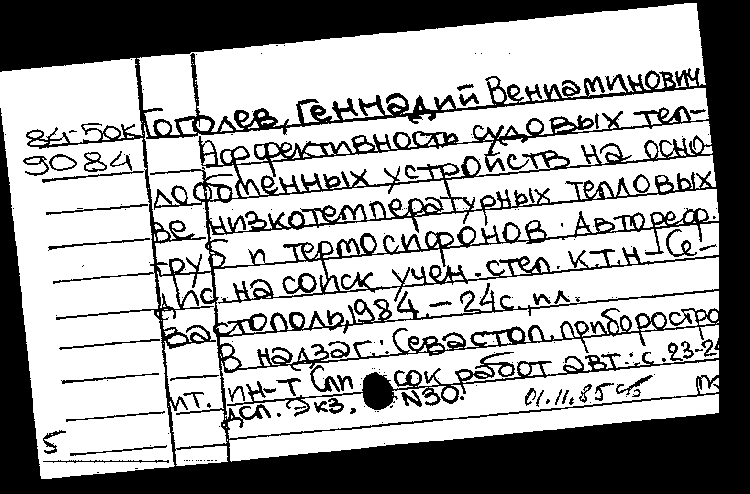 84-50К Гоголев, Геннадий Вениаминович
9084 Эффективность судовых теп-
лообменных устройств на осно-
ве низкотемпературных тепловых
труб и термосифонов: Автореф.
дис. на соиск учен. степ. к.т.н.-Се-
вастополь, 1984. - 24с., ил.
В надзаг.: Севастоп. приборостро
ит. ин-т Спи сок работ авт.: с. 23-24
ДСП. Экз. N30. 01.11.85
5